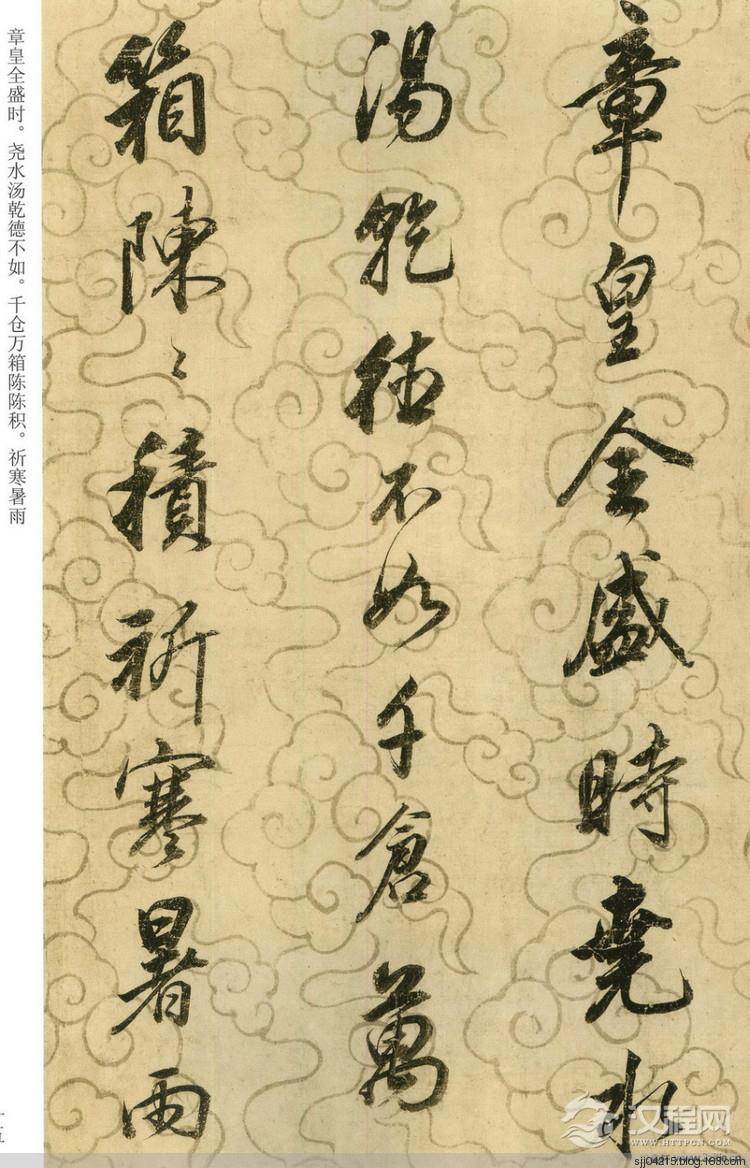 章皇全盛時堯水
湯乾德不如千倉萬
箱陳〻積祈寒暑雨
章皇全盛时。尧水汤乾德不如。千仓万箱陈陈积。祈寒暑雨
十五
汉程网
WWW.HTTPCN.COM
sjj04215.blog.163.com